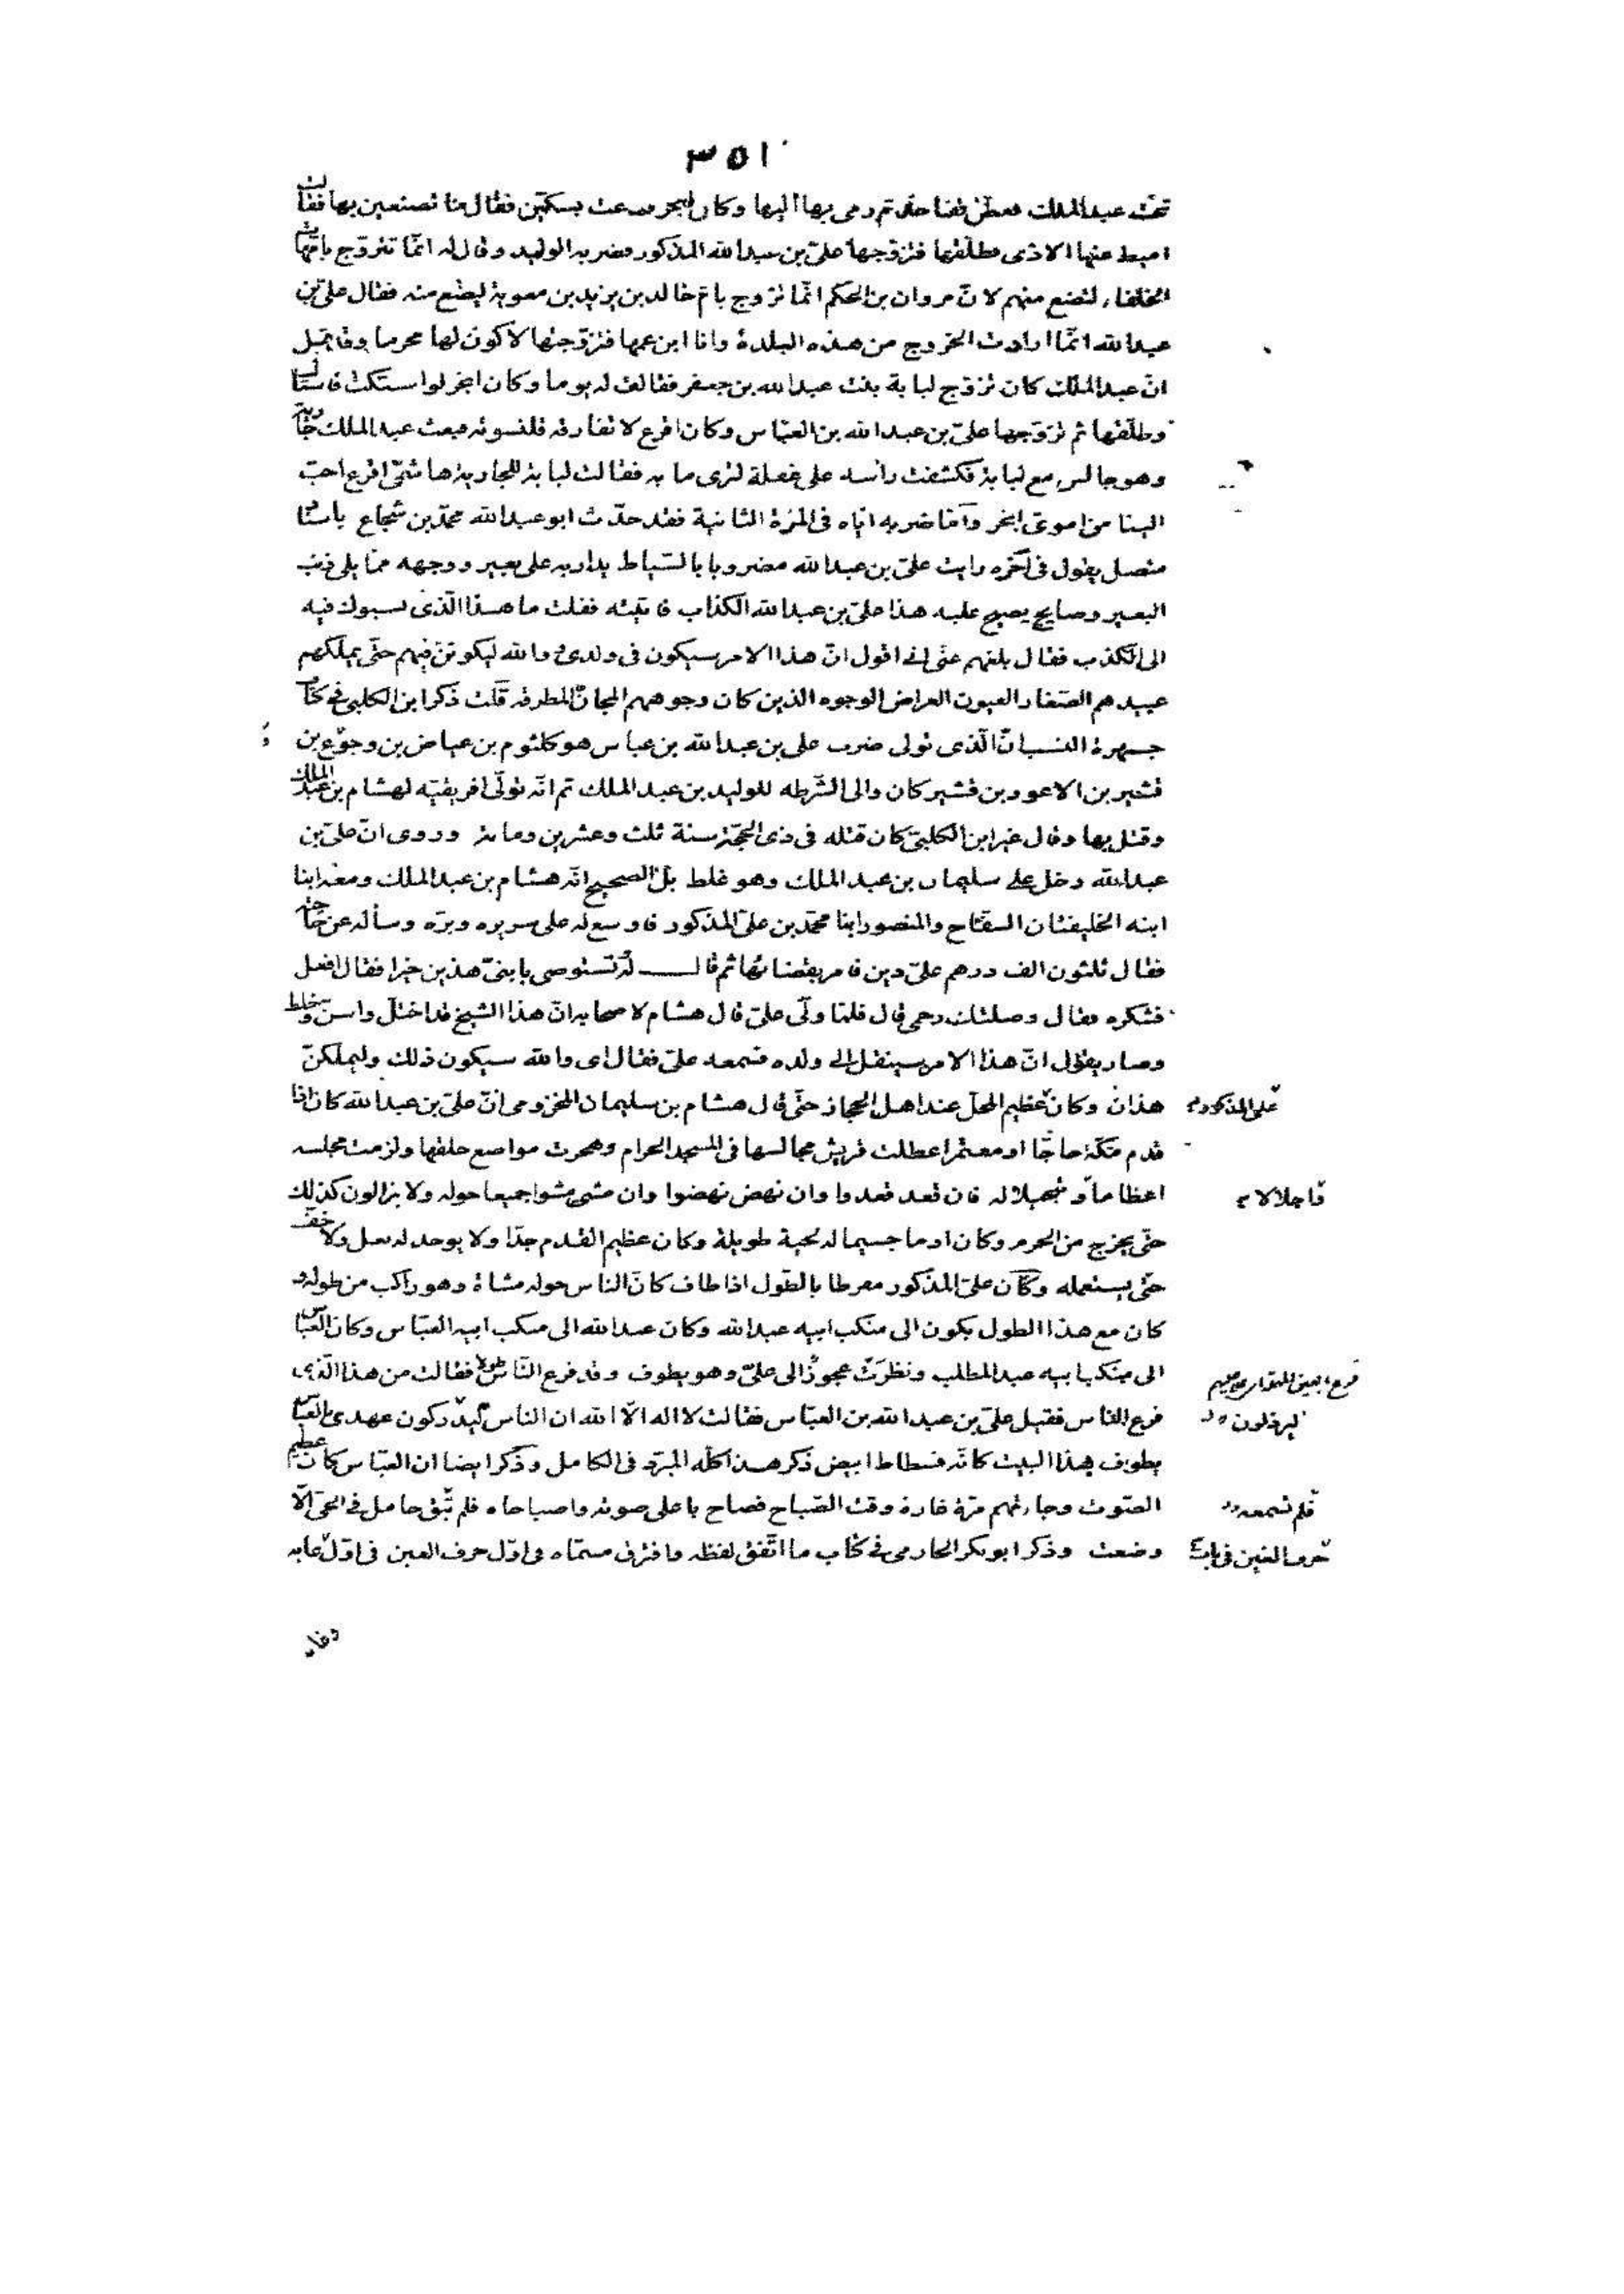 ٣٥١
تحت عبد الملك فعض تفاحة ثم رمى بها اليها وكان ابخر فدعت بسكين فقال ما تصنعين بها فقالت
اميط عنها الاذى فطلّقها فتزوّجها علىّ بن عبد الله المذكور فضربه الوليد وقال له انّما تتزوّج بامّهات
الخلفاء لتضع منهم لانّ مروان بن الحكم انّما تزوج بامّ خالد بن يزيد بن معوية ليضع منه فقال علىّ بن
عبد الله انّما ارادت الخروج من هذه البلدة وانا ابن عمها فتزوّجتها لاكون لها محرما وقد قيل
انّ عبد الملك كان تزوّج لبابة بنت عبد الله بن جعفر فقالت له يوما وكان ابخر لو استكت فاستاك
وطلّقها ثم تزوّجها علىّ بن عبد الله بن العبّاس وكان اقرع لا تفارقه قلنسوته فبعث عبد الملك جارية
وهو جالس مع لبابة فكشفت رأسه على غفلة لترى ما به فقالت لبابة للجارية هاشمىّ اقرع احبّ
الينا من اموىّ ابخر وأمّا ضربه ايّاه فى المرّة الثانية فقد حدّث ابو عبد الله محمّد بن شجاع باسناد
متصل يقول فى آخره رايت علىّ بن عبد الله مضروبا بالسّياط يدار به على بعير ووجهه ممّا يلى ذنب
البعير وصايح يصيح عليه هذا علىّ بن عبد الله الكذاب فاتيته فقلت ما هذا الّذى نسبوك فيه
الى الكذب فقال بلغهم عنّى انى اقول انّ هذا الامر سيكون فى ولدى والله ليكوننّ فيهم حتّى يملكهم
عبيدهم الصّغار العيون العراض الوجوه الذين كان وجوههم المجانّ المطرقة قلت ذكر ابن الكلبى فى كتاب
جمهرة النسب انّ الّذى تولى ضرب على بن عبد الله بن عباس هو كلثوم بن عياض بن وجوّع بن
قشير بن الاعور بن قشير كان والى الشّرطه للوليد بن عبد الملك ثم انّه تولّى افريقيّه لهشام بن عبد الملك
وقتل بها وقال غير ابن الكلبىّ كان قتله فى ذى الحجّة سنة ثلث وعشرين ومائة وروى انّ علىّ بن
عبد الله دخل على سليمان بن عبد الملك وهو غلط بل الصحيح انّه هشام بن عبد الملك ومعه ابنا
ابنه الخليفتان السفّاح والمنصور ابنا محمّد بن علىّ المذكور فاوسع له على سريره وبرّه وسأله عن حاجته
فقال ثلثون الف درهم علىّ دين فامر بقضائها ثم قال له تستوصى بابنىّ هذين خيرا فقال افعل
فشكره فقال وصلتك رحم قال فلمّا ولّى علىّ قال هشام لاصحابه انّ هذا الشيخ قد اختلّ واسنّ وخلط
وصار يقول انّ هذا الامر سينقل الى ولده فسمعه علىّ فقال اى والله سيكون ذلك وليملكنّ
هذان وكان عظيم المحلّ عند اهل الحجاز حتّى قال هشام بن سليمان المخزومى انّ علىّ بن عبد الله كان اذا
علىّ المذكور
قدم مكّة حاجّا او معتمرا عطلت قريش مجالسها فى المسجد الحرام وهجرت مواضع حلقها ولزمت مجلسه
اعظاما و تبجيلا له فان قعد قعدوا وان نهض نهضوا وان مشى مشوا جميعا حوله ولا يزالون كذلك
واجلالا
حتّى يخرج من الحرم وكان ادما جسيما له لحية طويلة وكان عظيم القدم جدّا ولا يوجد له نعل ولا خفّ
حتّى يستعمله وكان علىّ المذكور مفرطا بالطّول اذا طاف كانّ الناس حوله مشاة وهو راكب من طوله و
كان مع هذا الطول يكون الى منكب ابيه عبد الله وكان عبد الله الى منكب ابيه العبّاس وكان العبّاس
الى منكب ابيه عبد المطلب ونظرت عجوز الى علىّ وهو يطوف وقد فرع النّاس طولا فقالت من هذا الّذى
فرع الناس فقيل علىّ بن عبد الله بن العبّاس فقالت لا اله الّا الله ان الناس ليرذلون عهدى بالعبّاس
ليرذلون
يطوف بهذا البيت كانّه فسطاط ابيض ذكر هذا كلّه المبرّد فى الكامل وذكر ايضا ان العبّاس كان عظيم
الصّوت وجاءتهم مرّة غارة وقت الصّباح فصاح باعلى صوته واصباحاه فلم تبق حامل فى الحىّ الّا
فلم تسمعه
وضعت وذكر ابو بكر الحازمى فى كتاب ما اتّفق لفظه وافترق مسمّاه فى اوّل حرف العين فى اوّل غابه
حرف الغين فى باب
وقاد